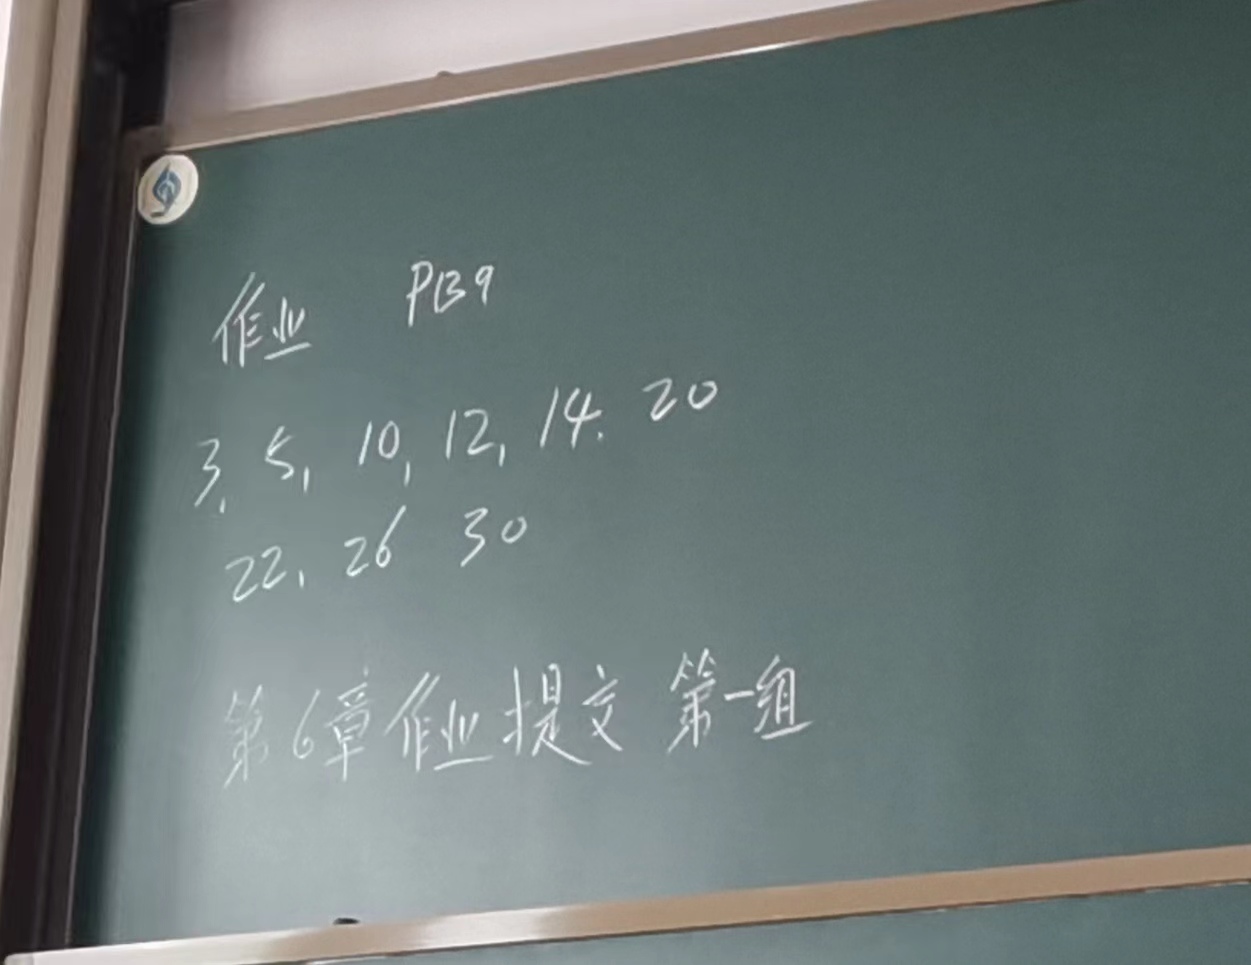 作业 P139
3, 5, 10, 12, 14. 20
22, 26 30
第6章作业提交 第一组